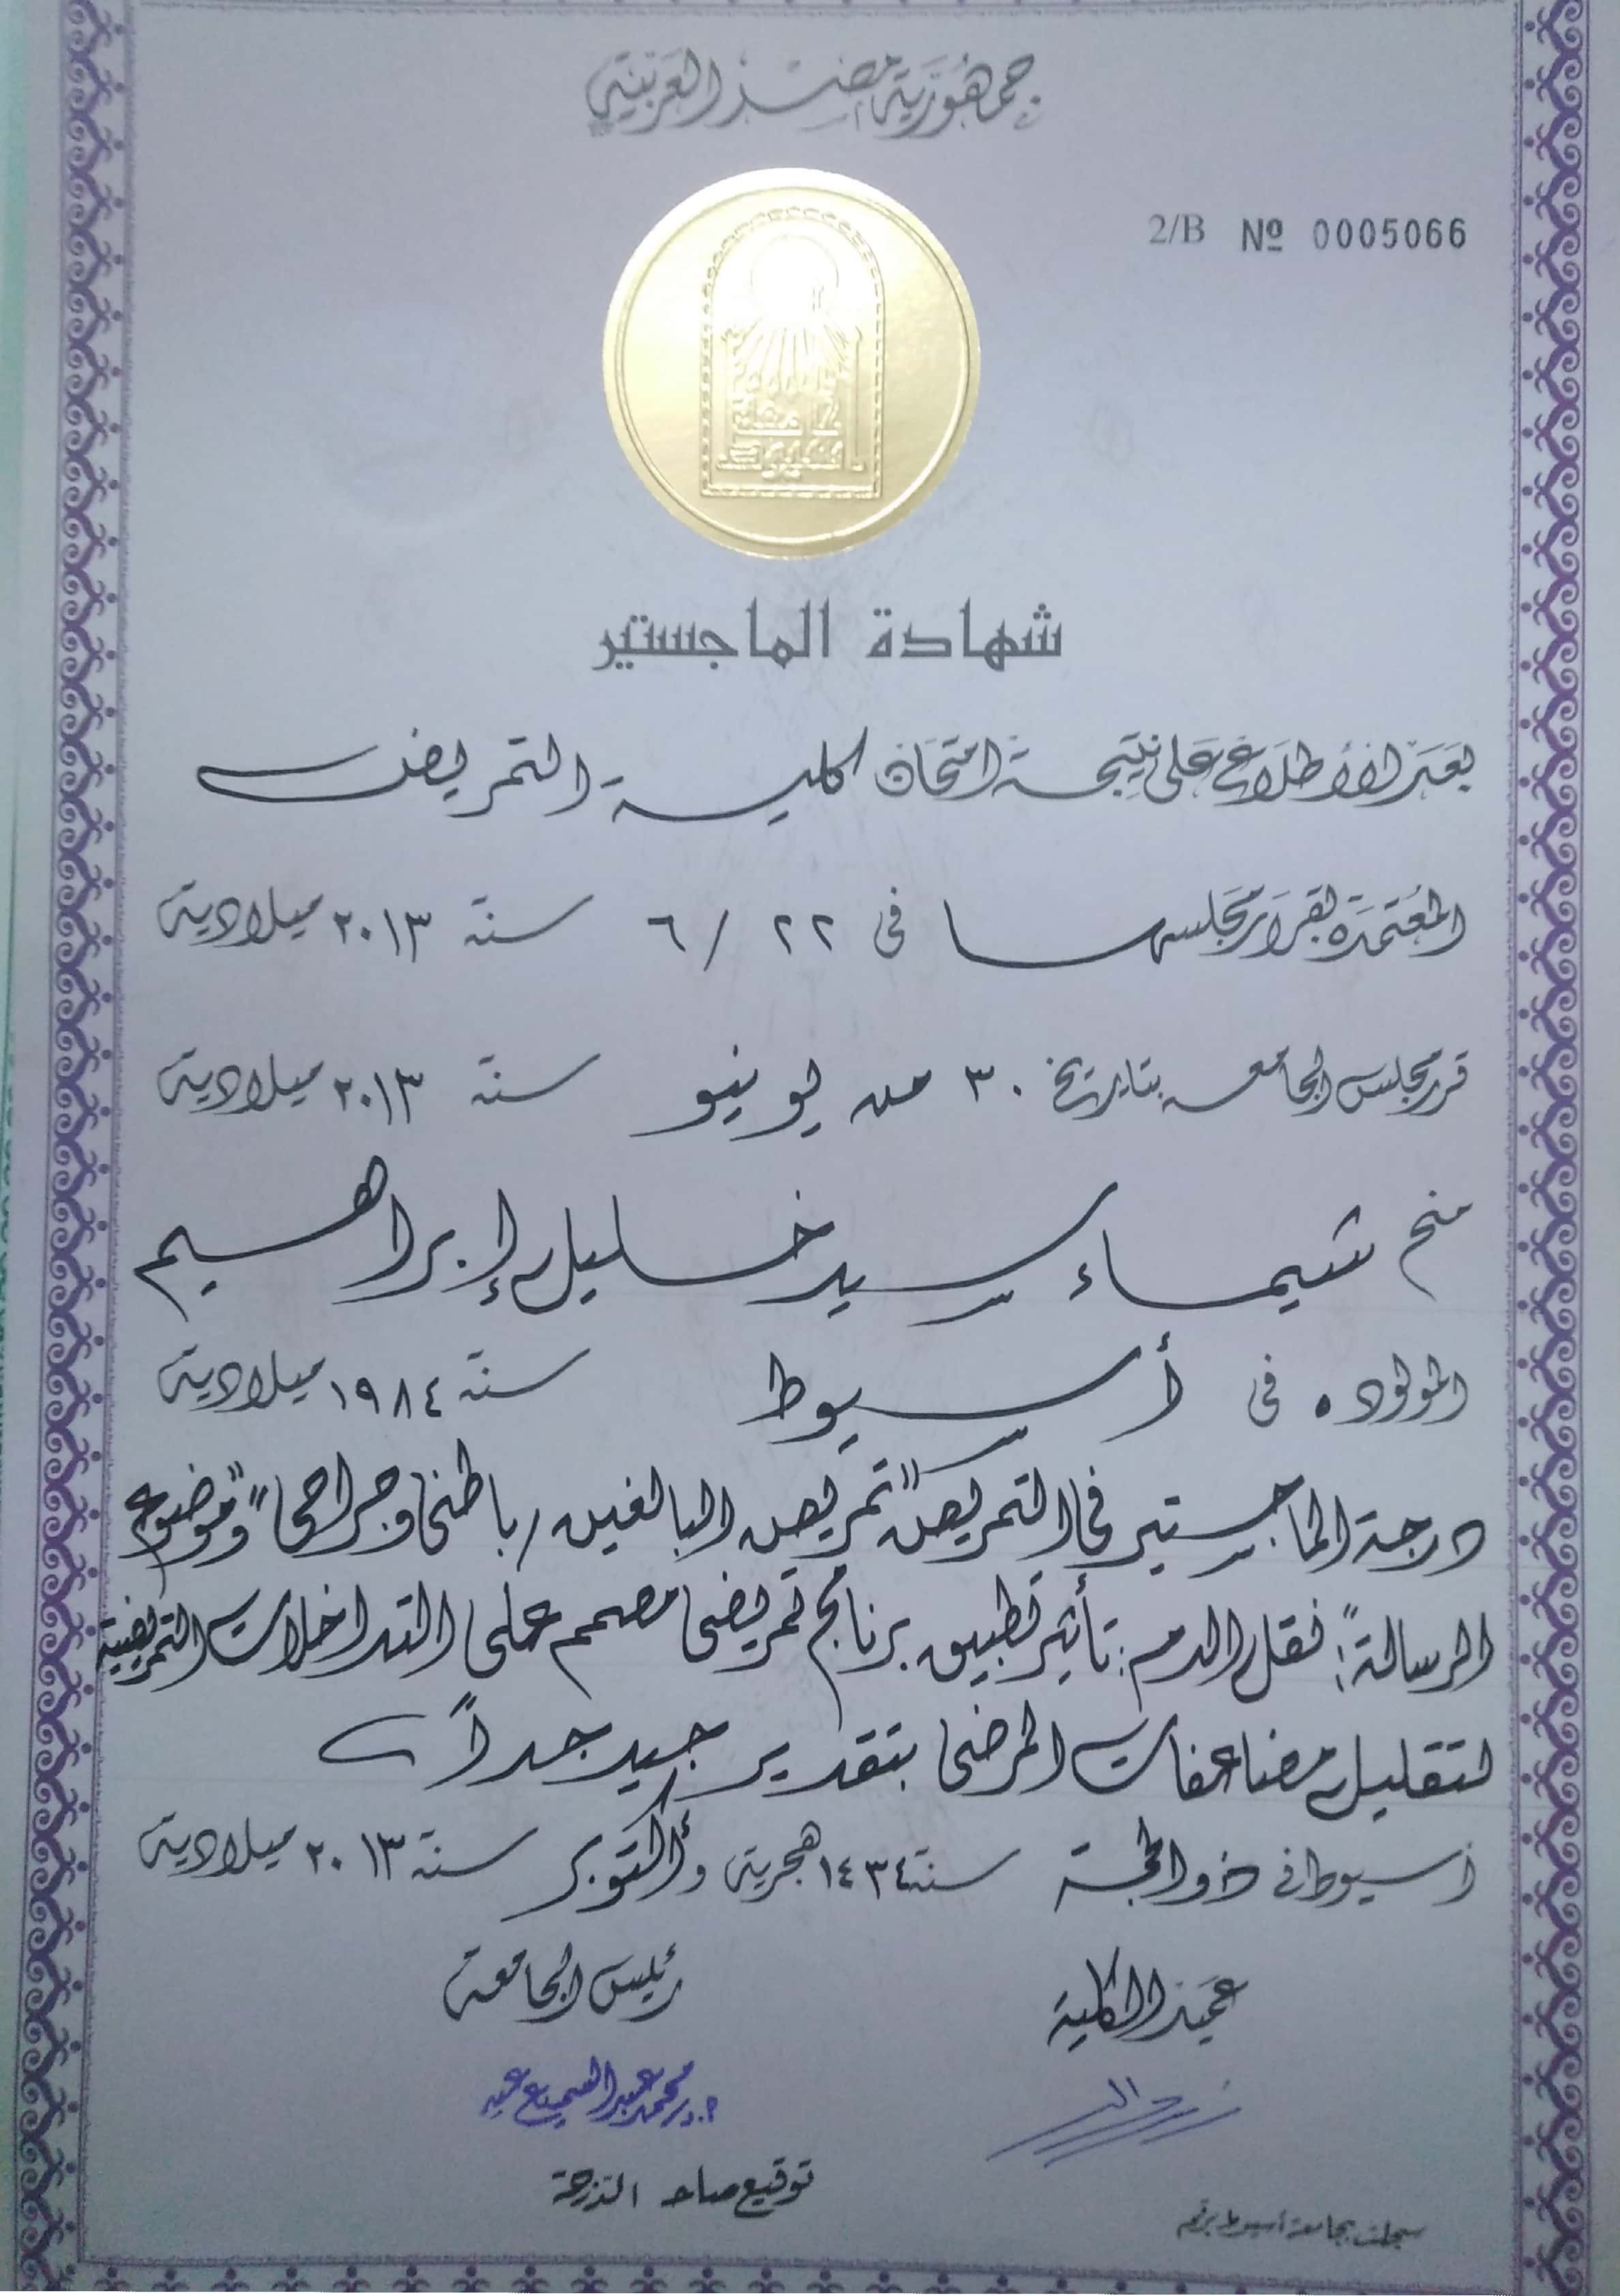 جمهورية مصر العربية
2/B Nº 0005066
جامعة
أسيوط
شهادة الماجستير
بعد الأطلاع على نتيجة امتحان كلية التمريض
المعتمدة بقرار مجلسها فى ٢٢ / ٦ سنة ٢٠١٣ ميلادية
قرر مجلس الجامعة بتاريخ ٣٠ من يونيو سنة ٢٠١٣ ميلادية
منح شيماء سيد خليل إبراهيم
المولوده فى أسيوط سنة ١٩٨٤ ميلادية
درجة الماجستير فى التمريض "تمريض البالغين / باطنى وجراحى" وموضوع
الرسالة: "نقل الدم: تأثير تطبيق برنامج تمريضى مصمم على التداخلات التمريضية
لتقليل مضاعفات المرضى بتقدير جيد جداً"
أسيوط فى ذو الحجة سنة ١٤٣٤ هجرية وأكتوبر سنة ٢٠١٣ ميلادية
عميد الكلية رئيس الجامعة
د. محمد عبد السميع عيد
توقيع صاحب الدرجة
سجلت بجامعة أسيوط برقم